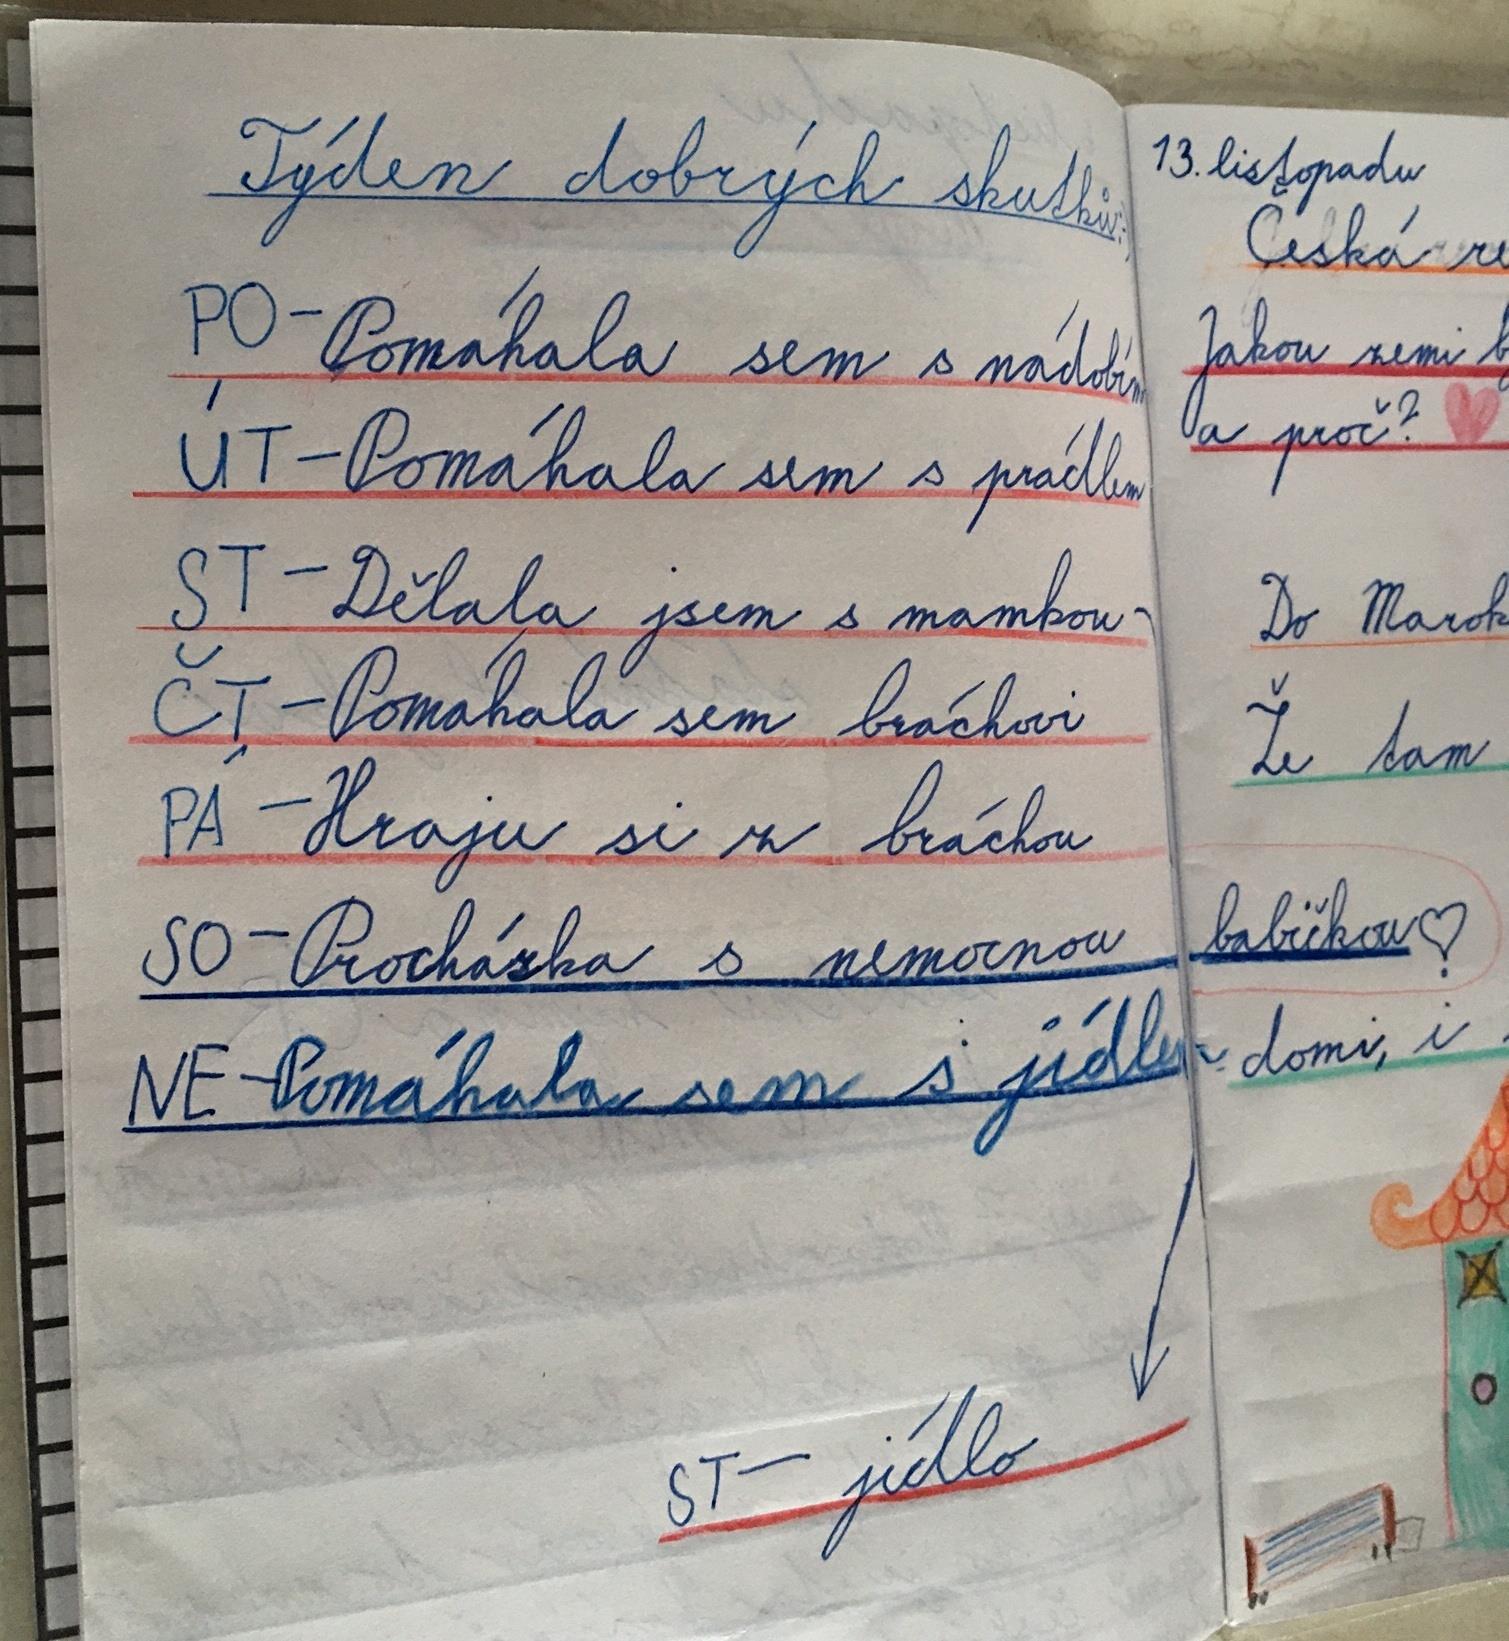 Týden dobrých skutků:
PO - Pomáhala sem s nádobím
ÚT - Pomáhala sem s prádlem
ST - Dělala jsem s mamkou -
ČT - Pomáhala sem bráchovi
PÁ - Hraju si z bráchou
SO - Procházka s nemocnou babičkou
NE - Pomáhala sem s jídlem
ST - jídlo
13. listopadu
Česká
Jakou zemi
a proč?
Do
Že tam
domi, i